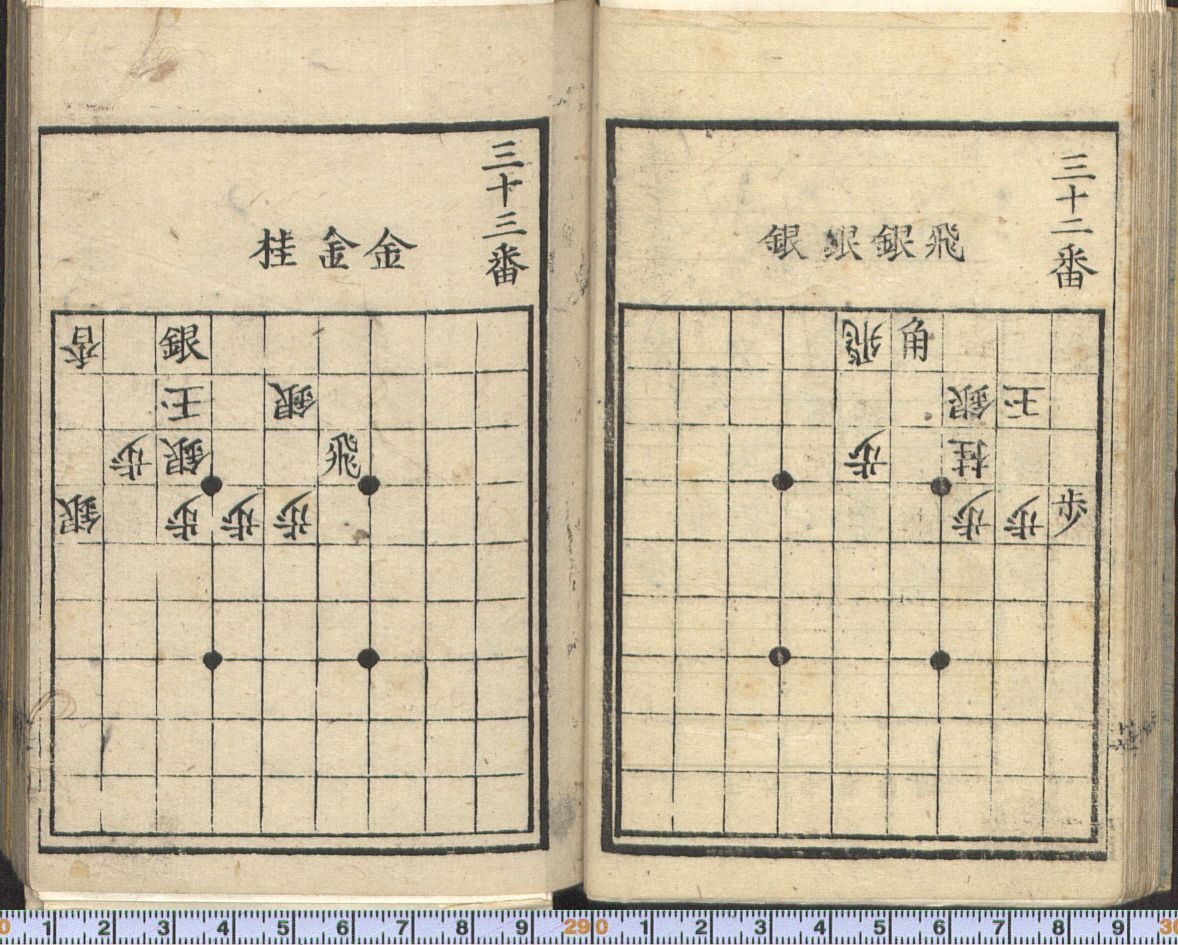 三十二番
飛銀銀銀
角飛
玉銀
桂歩
歩歩歩
三十三番
金金桂
銀香
銀玉
飛銀歩
歩歩歩銀
0 1 2 3 4 5 6 7 8 9 29 0 1 2 3 4 5 6 7 8 9 30